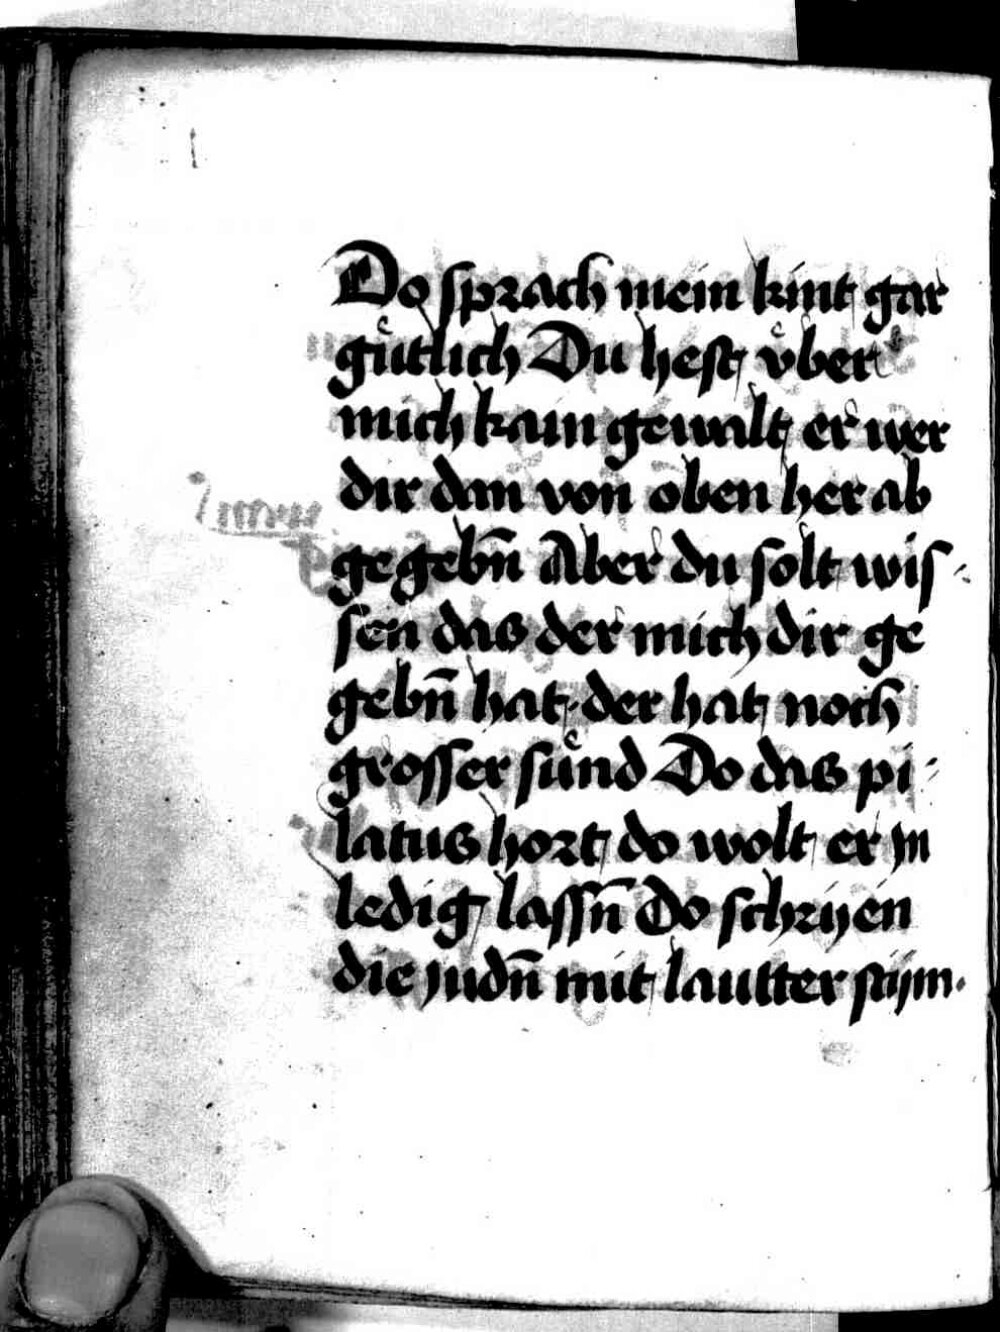 Do sprach mein kint gar
guͤtlich Du hest vͤber
mich kain gewalt er wer
dir dan von oben her ab
ge gebn̄ Aber du solt wis-
sen das der mich dir ge
gebn̄ hat der hat noch
grosser suͤnd Do das pi-
latus hort do wolt er in
ledig lassn̄ Do schrijen
die judn̄ mit lautter stijm